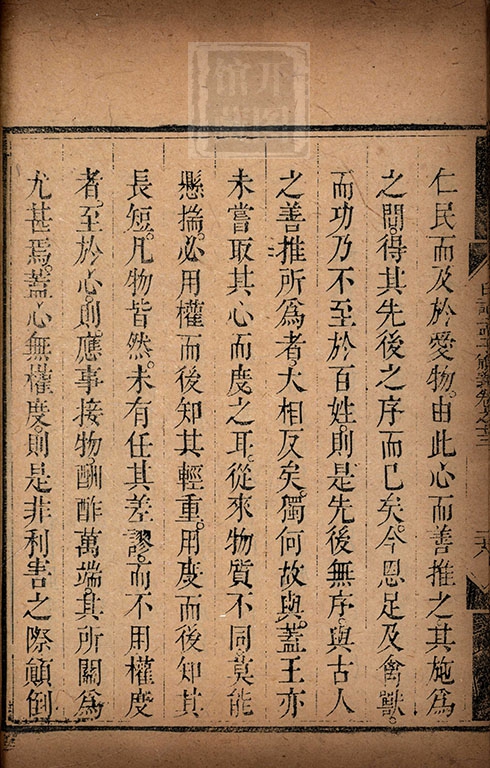 仁民而及於愛物。由此心而善推之其施爲
之間。得其先後之序而已矣。今恩足及禽獸。
而功乃不至於百姓。則是先後無序。與古人
之善推所爲者大相反矣。獨何故與。蓋王亦
未嘗取其心而度之耳。從來物質不同。莫能
懸揣。必用權而後知其輕重。用度而後知其
長短。凡物皆然。未有任其差謬。而不用權度
者。至於心。則應事接物。酬酢萬端。其所關爲
尤甚焉。蓋心無權度。則是非利害之際顛倒